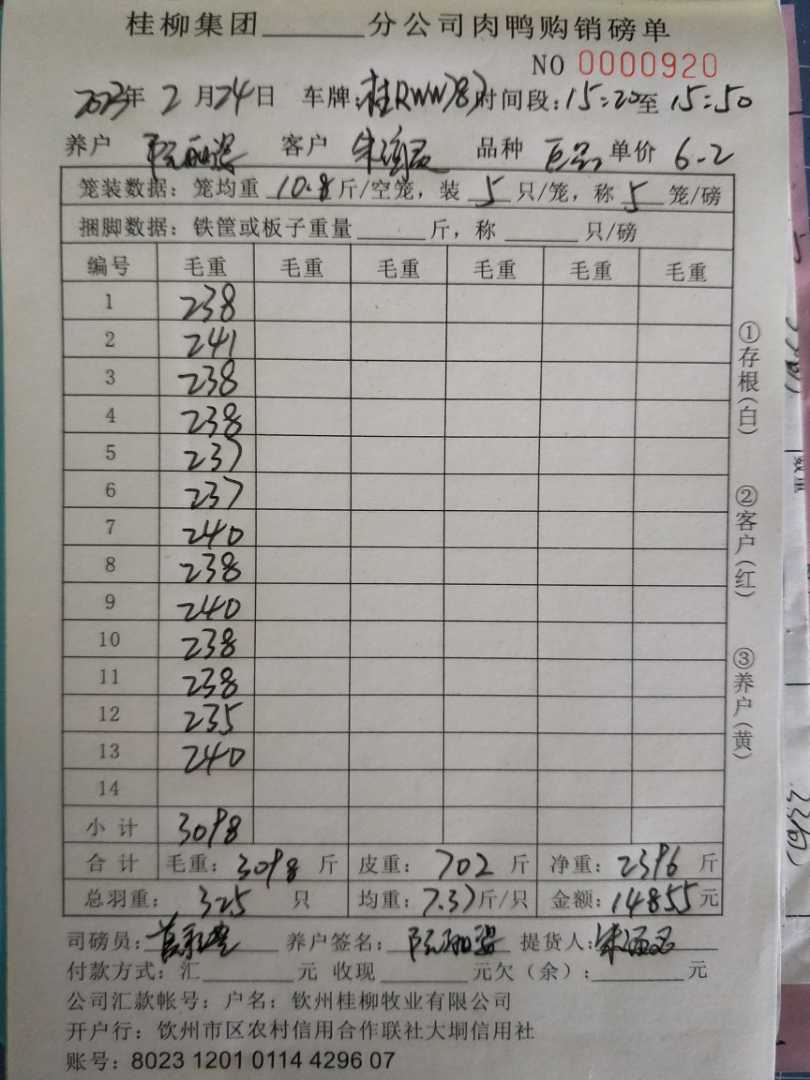 桂柳集团______分公司肉鸭购销磅单
NO 0000920
2023年 2月24日 车牌:桂RWW787 时间段:15:20至15:50
养户 客户 品种 单价 6.2
笼装数据: 笼均重 10.8 斤/空笼, 装 5 只/笼, 称 5 笼/磅
捆脚数据: 铁筐或板子重量______斤, 称______只/磅
编号 毛重 毛重 毛重 毛重 毛重 毛重
1 238
2 241
3 238
4 238
5 237
6 237
7 240
8 238
9 240
10 238
11 238
12 235
13 240
14
小计 3098
合计 毛重: 3098 斤 皮重: 702 斤 净重: 2396 斤
总羽重: 325 只 均重: 7.37斤/只 金额: 14855元
司磅员: 养户签名: 提货人:
付款方式: 汇______元 收现______元欠(余):______元
公司汇款帐号: 户名: 钦州桂柳牧业有限公司
开户行: 钦州市区农村信用合作联社大垌信用社
账号: 8023 1201 0114 4296 07
①存根(白)
②客户(红)
③养户(黄)